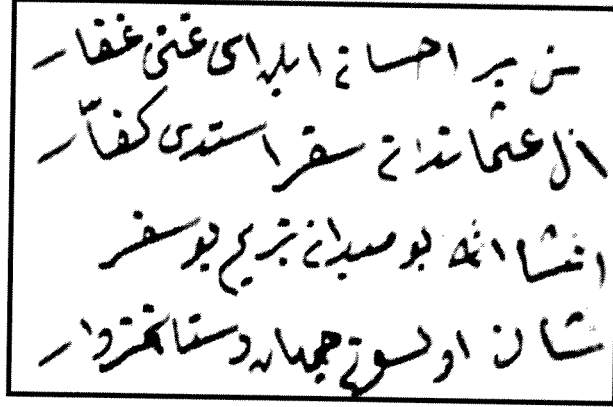 سن بر احسان ایله ای غنی غفار
ال عثماندان سفر استدی کفّار
انشاالله بو میدان بزیم بو سفر
شان اولسون جهان دستانمز وار